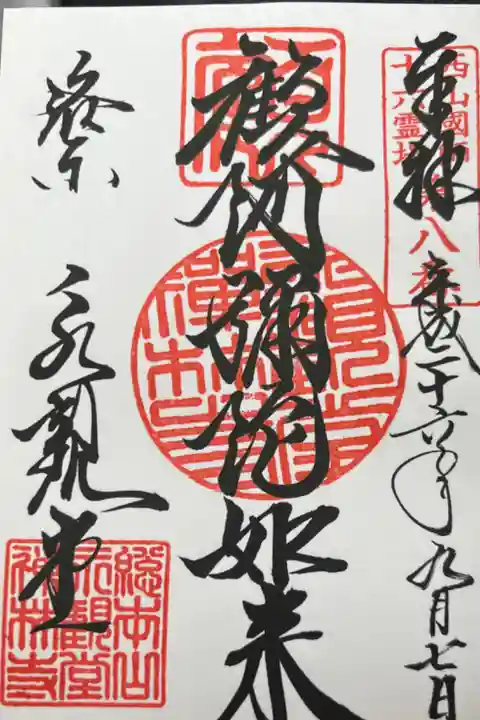 西山國師
十六霊場第八番
奉拝
平成二十六年九月七日
彌陀如来
洛東
永觀堂
総本山
永觀堂
禅林寺